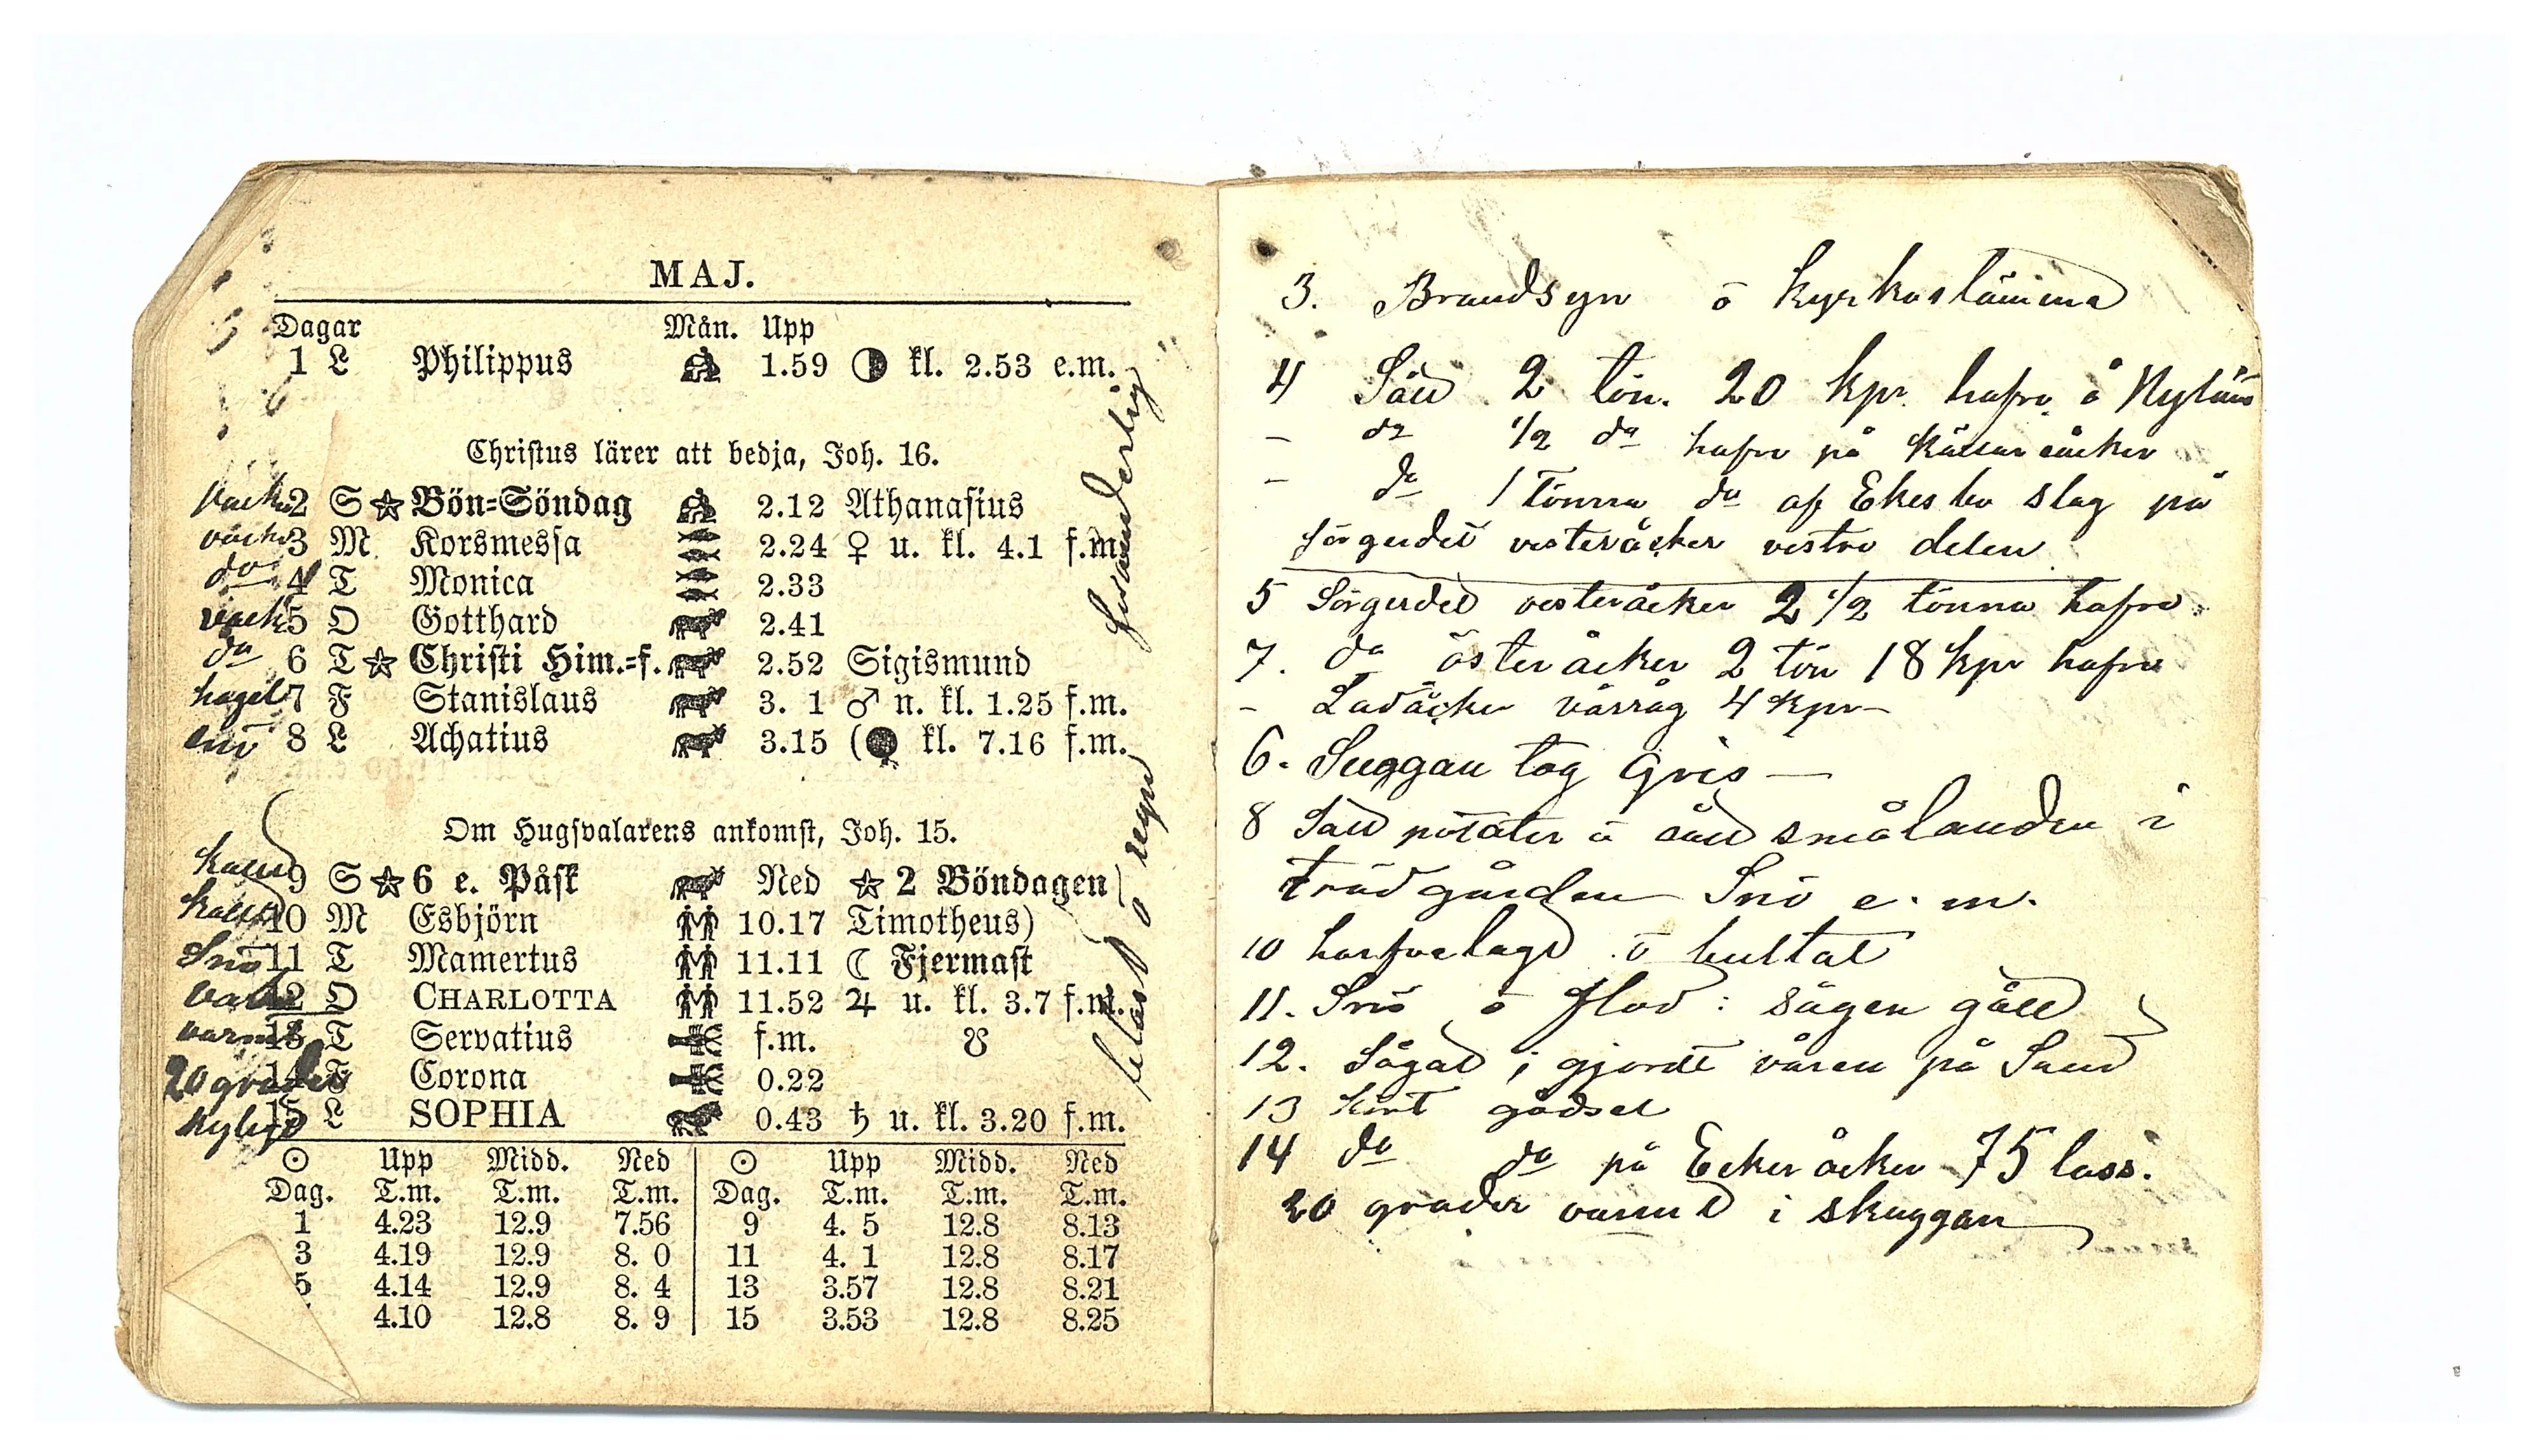 MAJ.
Dagar Mån. Upp
1 L Philippus 1.59 kl. 2.53 e.m.
Christus lärer att bedja, Joh. 16.
2 S Bön-Söndag 2.12 Athanasius
vackr 3 M Korsmessa 2.24 ♀ u. kl. 4.1 f.m.
do 4 T Monica 2.33
vackr 5 O Gotthard 2.41
do 6 T Christi Him.-f. 2.52 Sigismund
hagel 7 F Stanislaus 3. 1 ♂ n. kl. 1.25 f.m.
snö 8 L Achatius 3.15 ( kl. 7.16 f.m.
Om Hugsvalarens ankomst, Joh. 15.
kallt 9 S 6 e. Påsk Ned 2 Böndagen
kallt 10 M Esbjörn 10.17 Timotheus)
Snö 11 T Mamertus 11.11 ☾ Fjermast
12 O CHARLOTTA 11.52 ♃ u. kl. 3.7 f.m.
varmt 13 T Servatius f.m. ☋
20 grader 14 F Corona 0.22
kyligt 15 L SOPHIA 0.43 ♄ u. kl. 3.20 f.m.
☉ Upp Midd. Ned ☉ Upp Midd. Ned
Dag. T.m. T.m. T.m. Dag. T.m. T.m. T.m.
1 4.23 12.9 7.56 9 4. 5 12.8 8.13
3 4.19 12.9 8. 0 11 4. 1 12.8 8.17
5 4.14 12.9 8. 4 13 3.57 12.8 8.21
4.10 12.8 8. 9 15 3.53 12.8 8.25
blåst o regn
3. Brandsyn o kyrkostämma
4 Såd 2 tön. 20 kpr hafra å
- do 1/2 do hafre på Källaråcker
- do 1 tönna do af Ekesbo slag på
Sörgerdet vesteråcker vestra delen
5 Sörgerdet vesteråcker 2 1/2 tönna hafra
7. do österåcker 2 tön 18 kpr hafra
- Ladåcker vårråg 4 kpr -
6. Suggan tog Gris -
8 Såd potäter å såd smålanden i
trädgården Snö e. m.
10 harfvelagt o bultat
11. Snö o flod : sågen gåld
12. Sågat i gjorde våren på Sand
13 kört gödsel
14 do do på Ecker åcker 75 lass.
20 grader varmt i skuggan